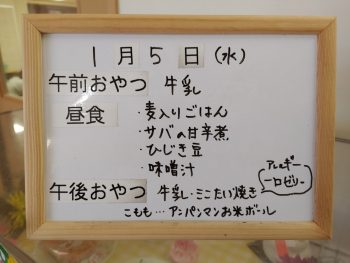 1月5日(水)
午前おやつ 牛乳
昼食 ・麦入りごはん
・サバの甘辛煮
・ひじき豆
・味噌汁
アレルギー
一口ゼリー
午後おやつ 牛乳・ミニたい焼き
こもも…アンパンマンお米ボール